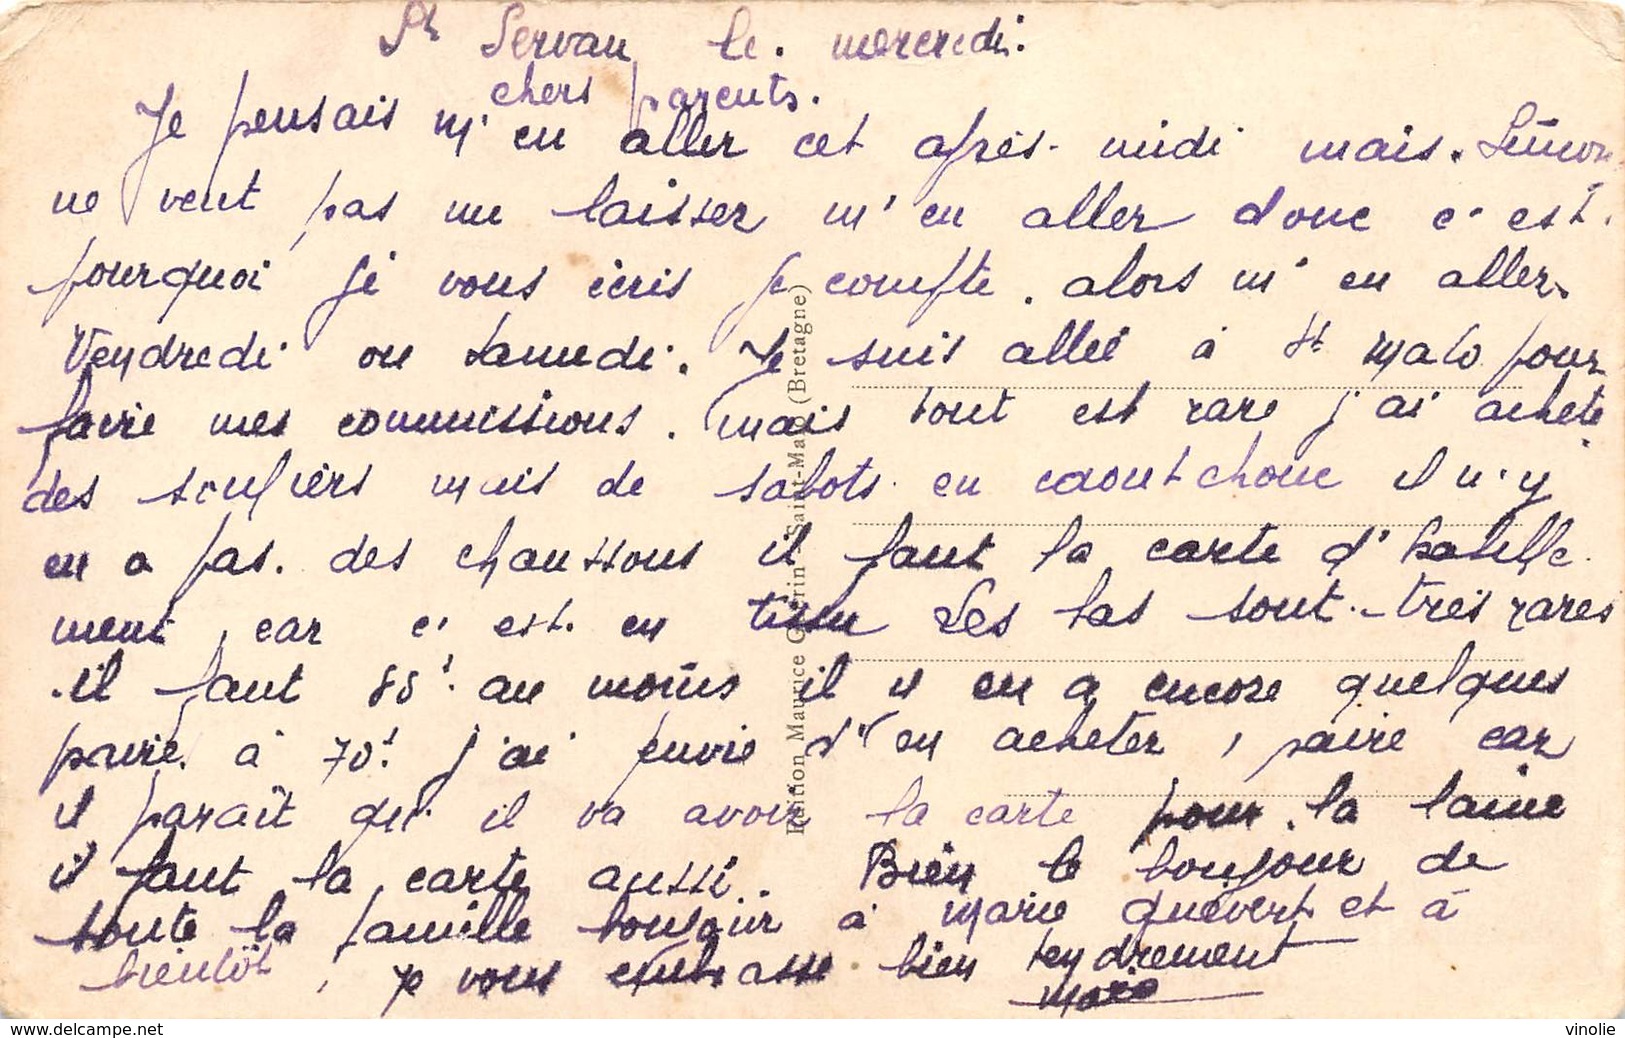 St Servan le. mercredi.
chers parents.
Je pensais m'en aller cet après-midi mais. Simon
ne veut pas me laisser m'en aller donc c'est.
pourquoi je vous écris je compte. alors m'en aller.
Vendredi ou samedi. Je suis allée à St Malo pour
faire mes commissions. mais tout est rare j'ai acheté
des souliers mais de sabots en caoutchouc il n'y
en a pas. des chaussons il faut la carte d'habille
ment, car c'est. en tissu Les bas sont très rares
.il faut 85f. au moins il y en a encore quelques
paire à 70f. j'ai envie d'en acheter 1 paire car
il parait qu'il va avoir la carte pour la laine
il faut la carte aussi. Bien le bonjour de
toute la famille bonjour à Marie Quévert et à
bientôt, je vous embrasse bien tendrement
Marie
Edition Maurice Guérin - Saint-Malo (Bretagne)
www.delcampe.net
vinolie